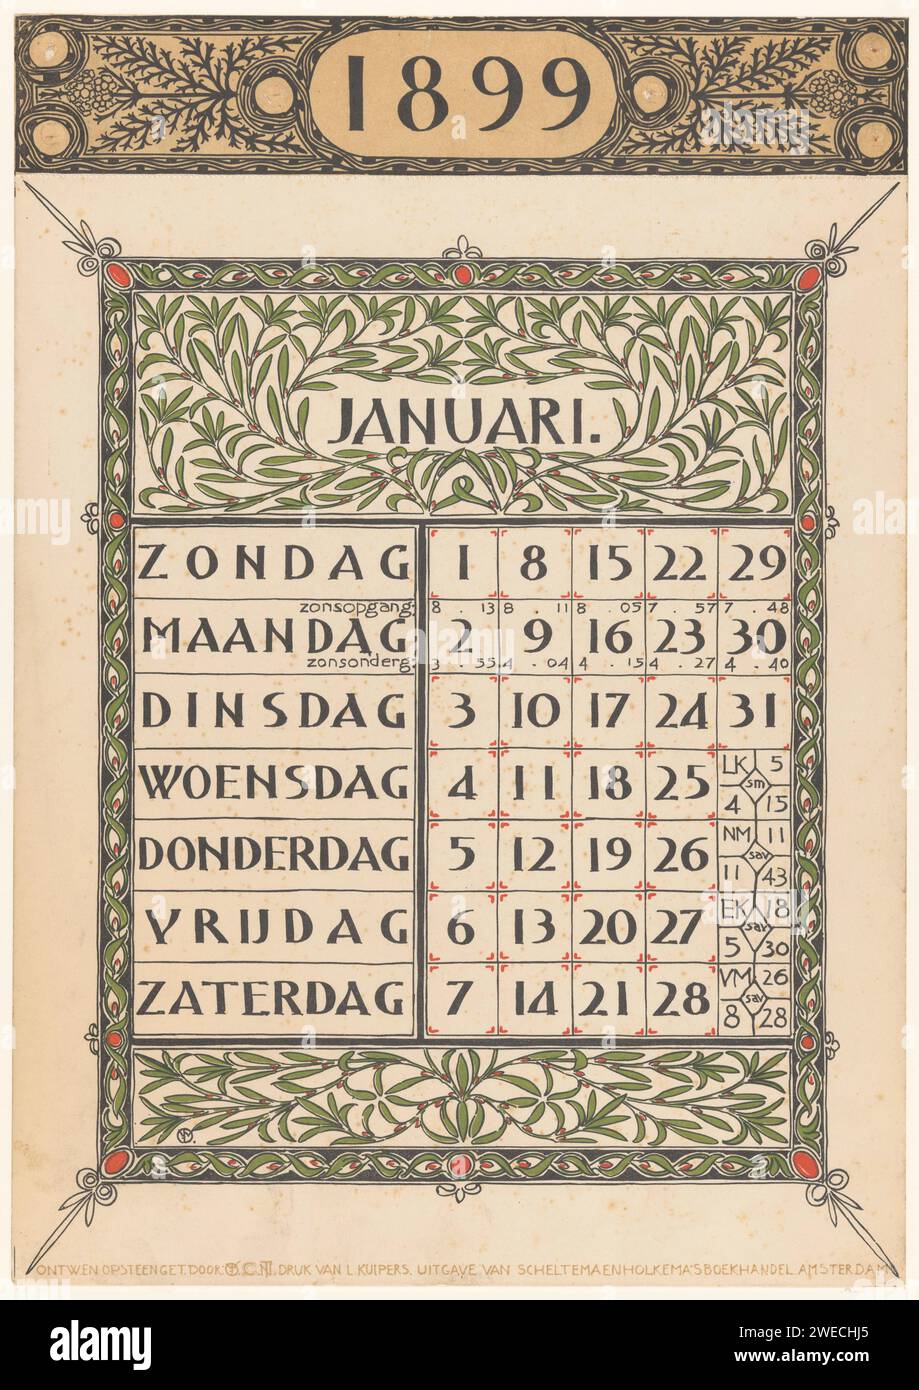 1899
JANUARI.
ZONDAG 1 8 15 22 29
zonsopgang: 8 . 13 8 . 11 8 . 05 7 . 57 7 . 48
MAANDAG 2 9 16 23 30
zonsonderg: 3 . 55 4 . 04 4 . 15 4 . 27 4 . 40
DINSDAG 3 10 17 24 31
WOENSDAG 4 11 18 25 LK 5 sm 4 15
DONDERDAG 5 12 19 26 NM 11 sav 11 43
VRIJDAG 6 13 20 27 EK 18 sav 5 30
ZATERDAG 7 14 21 28 VM 26 sav 8 28
ONTW. EN OP STEEN GET. DOOR: DRUK VAN L KUIPERS. UITGAVE VAN SCHELTEMA EN HOLKEMA'S BOEKHANDEL AMSTERDAM
alamy
alamy
Image ID: 2WECHJ5
www.alamy.com